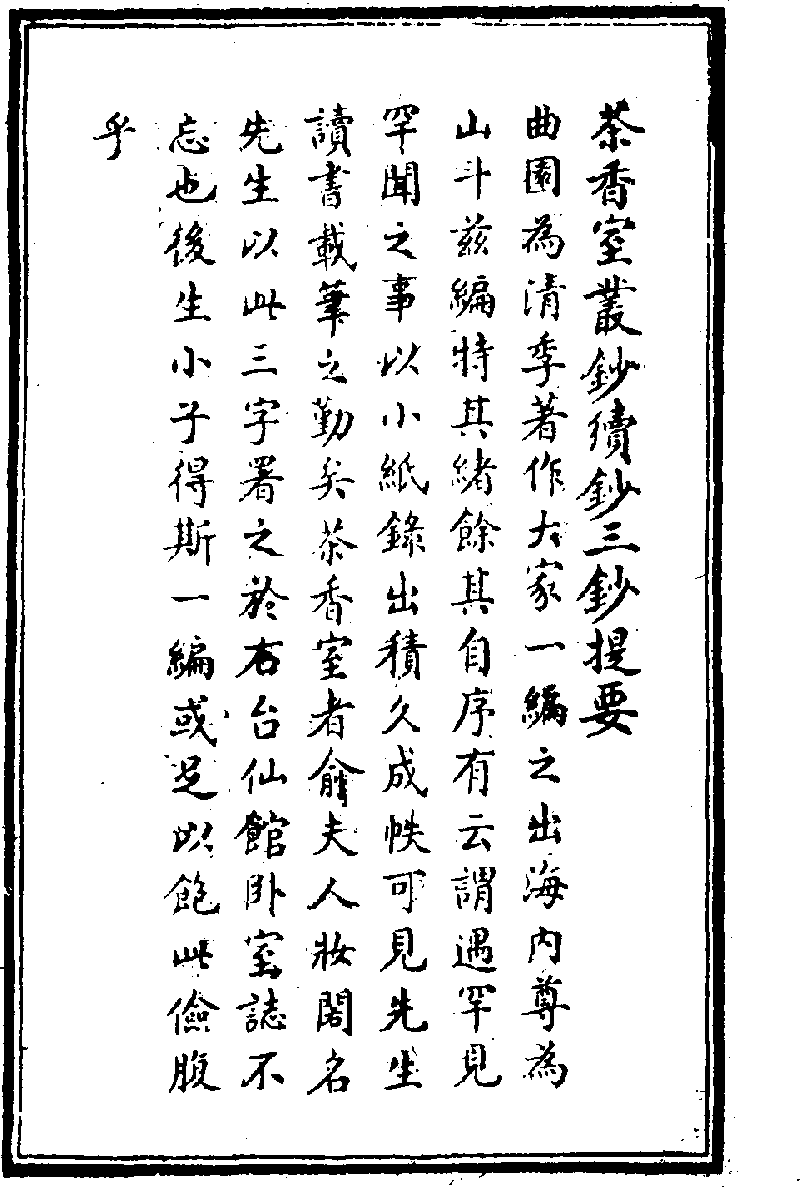 茶香室叢鈔續鈔三鈔提要
曲園為清季著作大家一編之出海內尊為
山斗兹編特其緒餘其自序有云謂遇罕見
罕聞之事以小紙錄出積久成帙可見先生
讀書載筆之勤矣茶香室者俞夫人妝閣名
先生以此三字署之於右台仙館卧室誌不
忘也後生小子得斯一編或足以飽此儉腹
乎